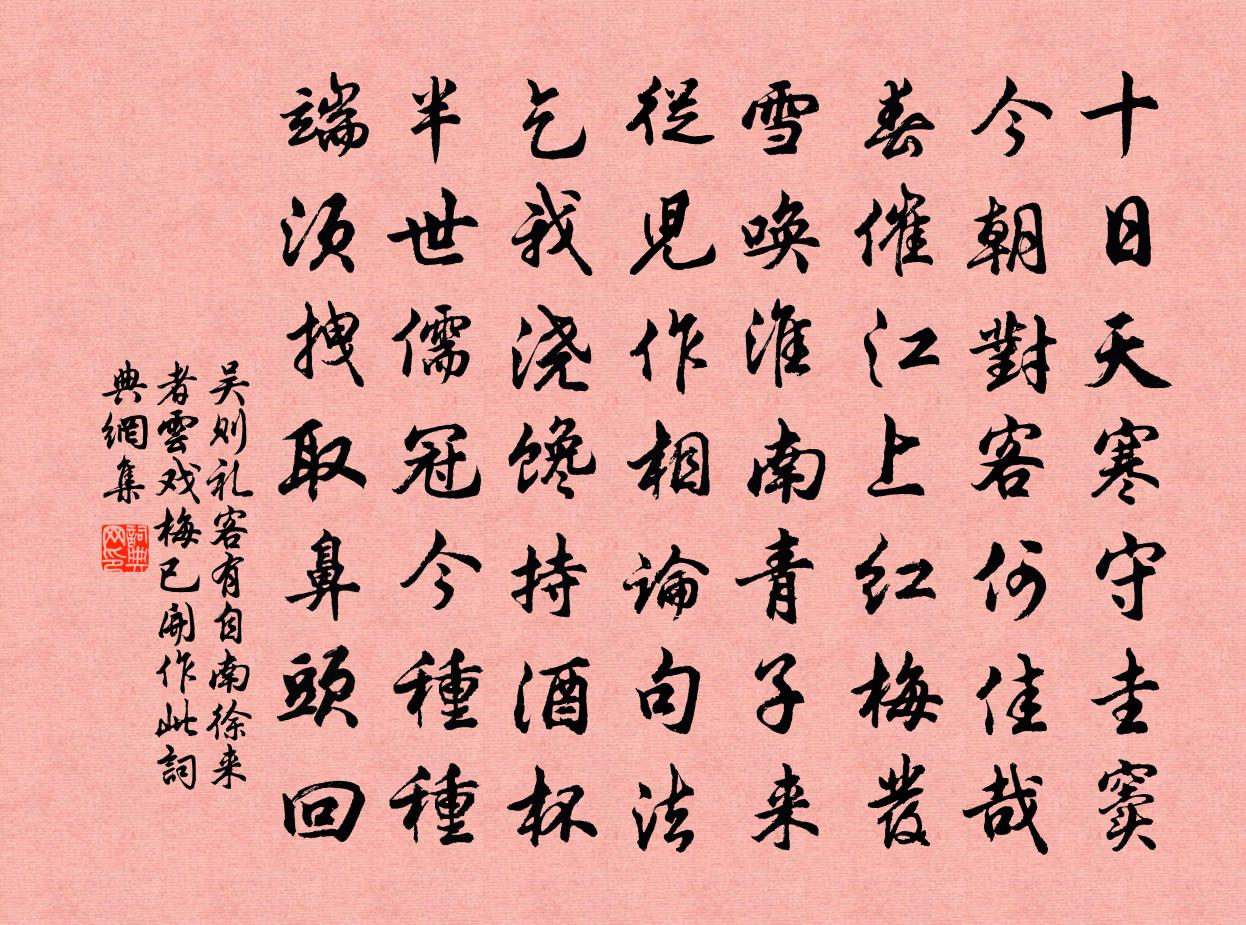 十日天寒守圭窦
今朝對客何佳哉
春催江上红梅發
雪唤淮南青子来
從兒作相論句法
乞我浇馋持酒杯
半世儒冠今種種
端须拽取鼻頭回
吴则礼客有自南徐来
者雲戏梅已開作此詞
典網集
詞典网印